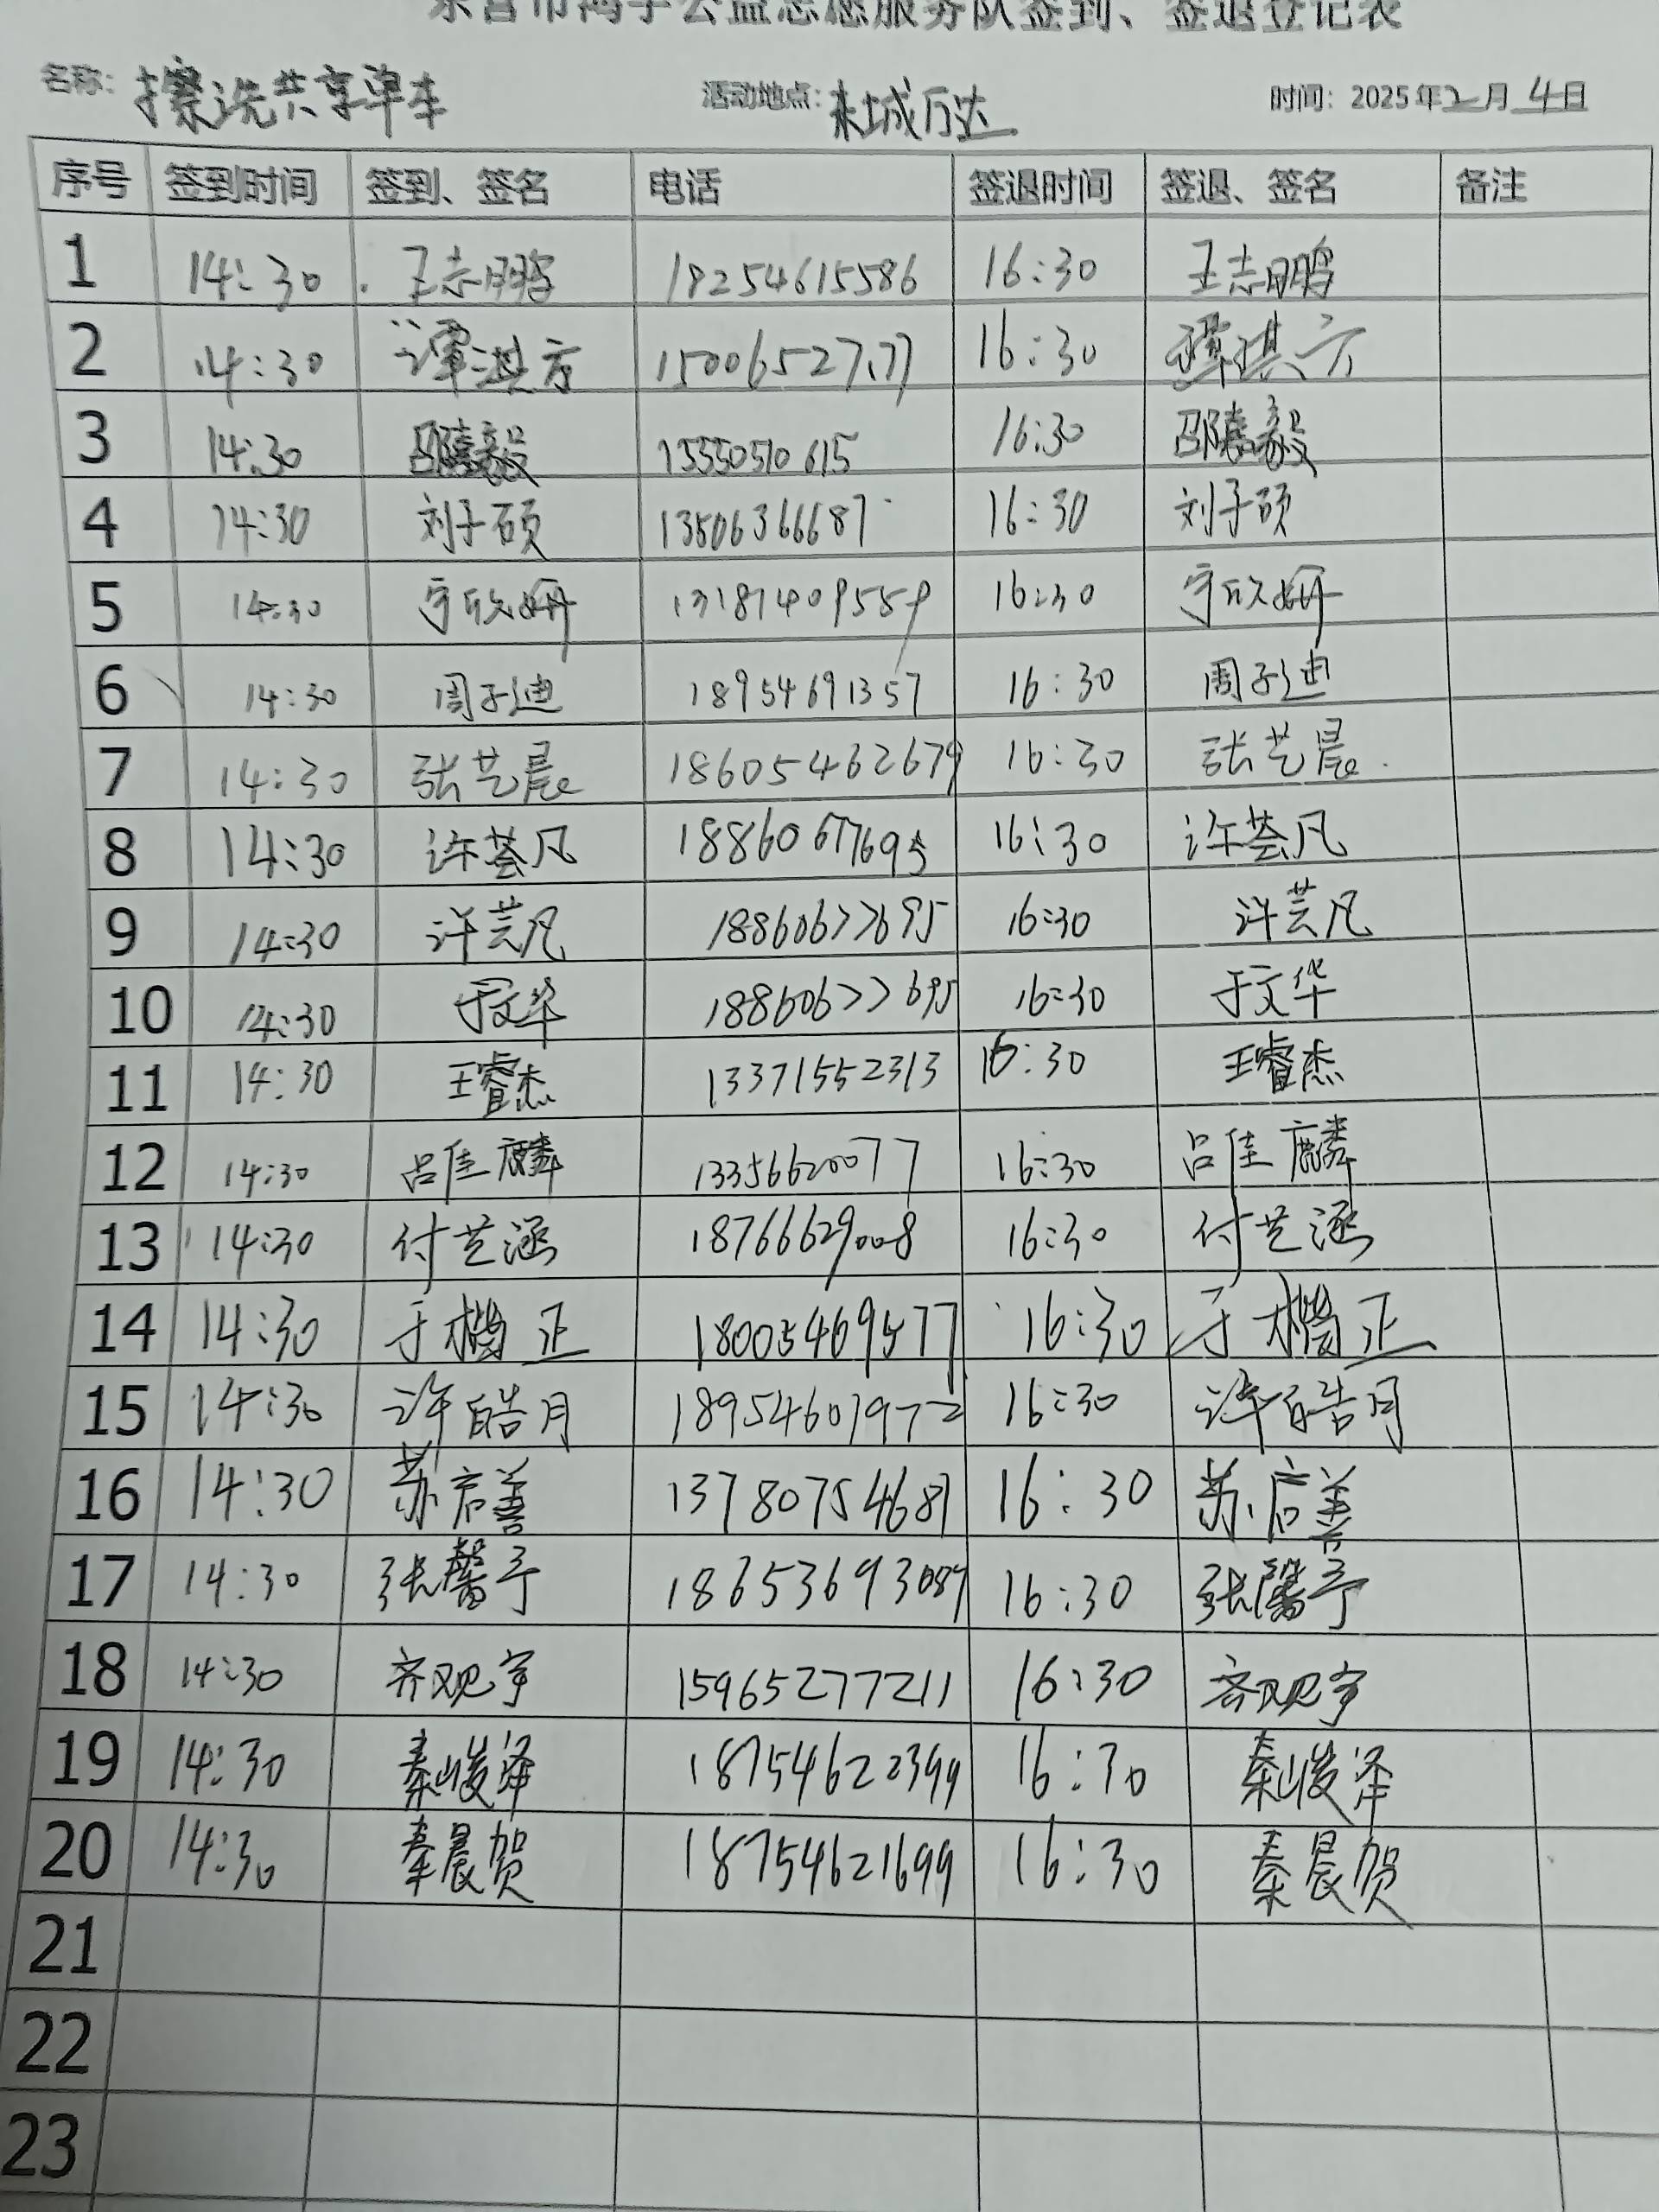 东营市鸿宇公益志愿服务队签到、签退登记表
名称: 擦洗共享单车 活动地点: 东城万达 时间: 2025年2月4日
序号 签到时间 签到、签名 电话 签退时间 签退、签名 备注
1 14:30 王志鹏 18254615586 16:30 王志鹏
2 14:30 谭淇方 16:30 谭淇方
3 14:30 邵嘉毅 15550510615 16:30 邵嘉毅
4 14:30 刘子硕 13506366687 16:30 刘子硕
5 14:30 欣妍 13187409559 16:30 欣妍
6 14:30 周子迪 18954691357 16:30 周子迪
7 14:30 张艺晨 18605462679 16:30 张艺晨
8 14:30 许荟凡 18860677695 16:30 许荟凡
9 14:30 许芸凡 18860677695 16:30 许芸凡
10 14:30 于文华 18860677695 16:30 于文华
11 14:30 王睿杰 13371552313 16:30 王睿杰
12 14:30 吕佳麟 13356620077 16:30 吕佳麟
13 14:30 付艺涵 18766629008 16:30 付艺涵
14 14:30 于 正 18005469577 16:30 于 正
15 14:30 许皓月 18954601972 16:30 许皓月
16 14:30 苏启善 13780754687 16:30 苏启善
17 14:30 张馨予 18653693087 16:30 张馨予
18 14:30 齐观宇 15965277211 16:30 齐观宇
19 14:30 秦峻泽 18754622399 16:30 秦峻泽
20 14:30 秦晨贺 18754621699 16:30 秦晨贺
21
22
23